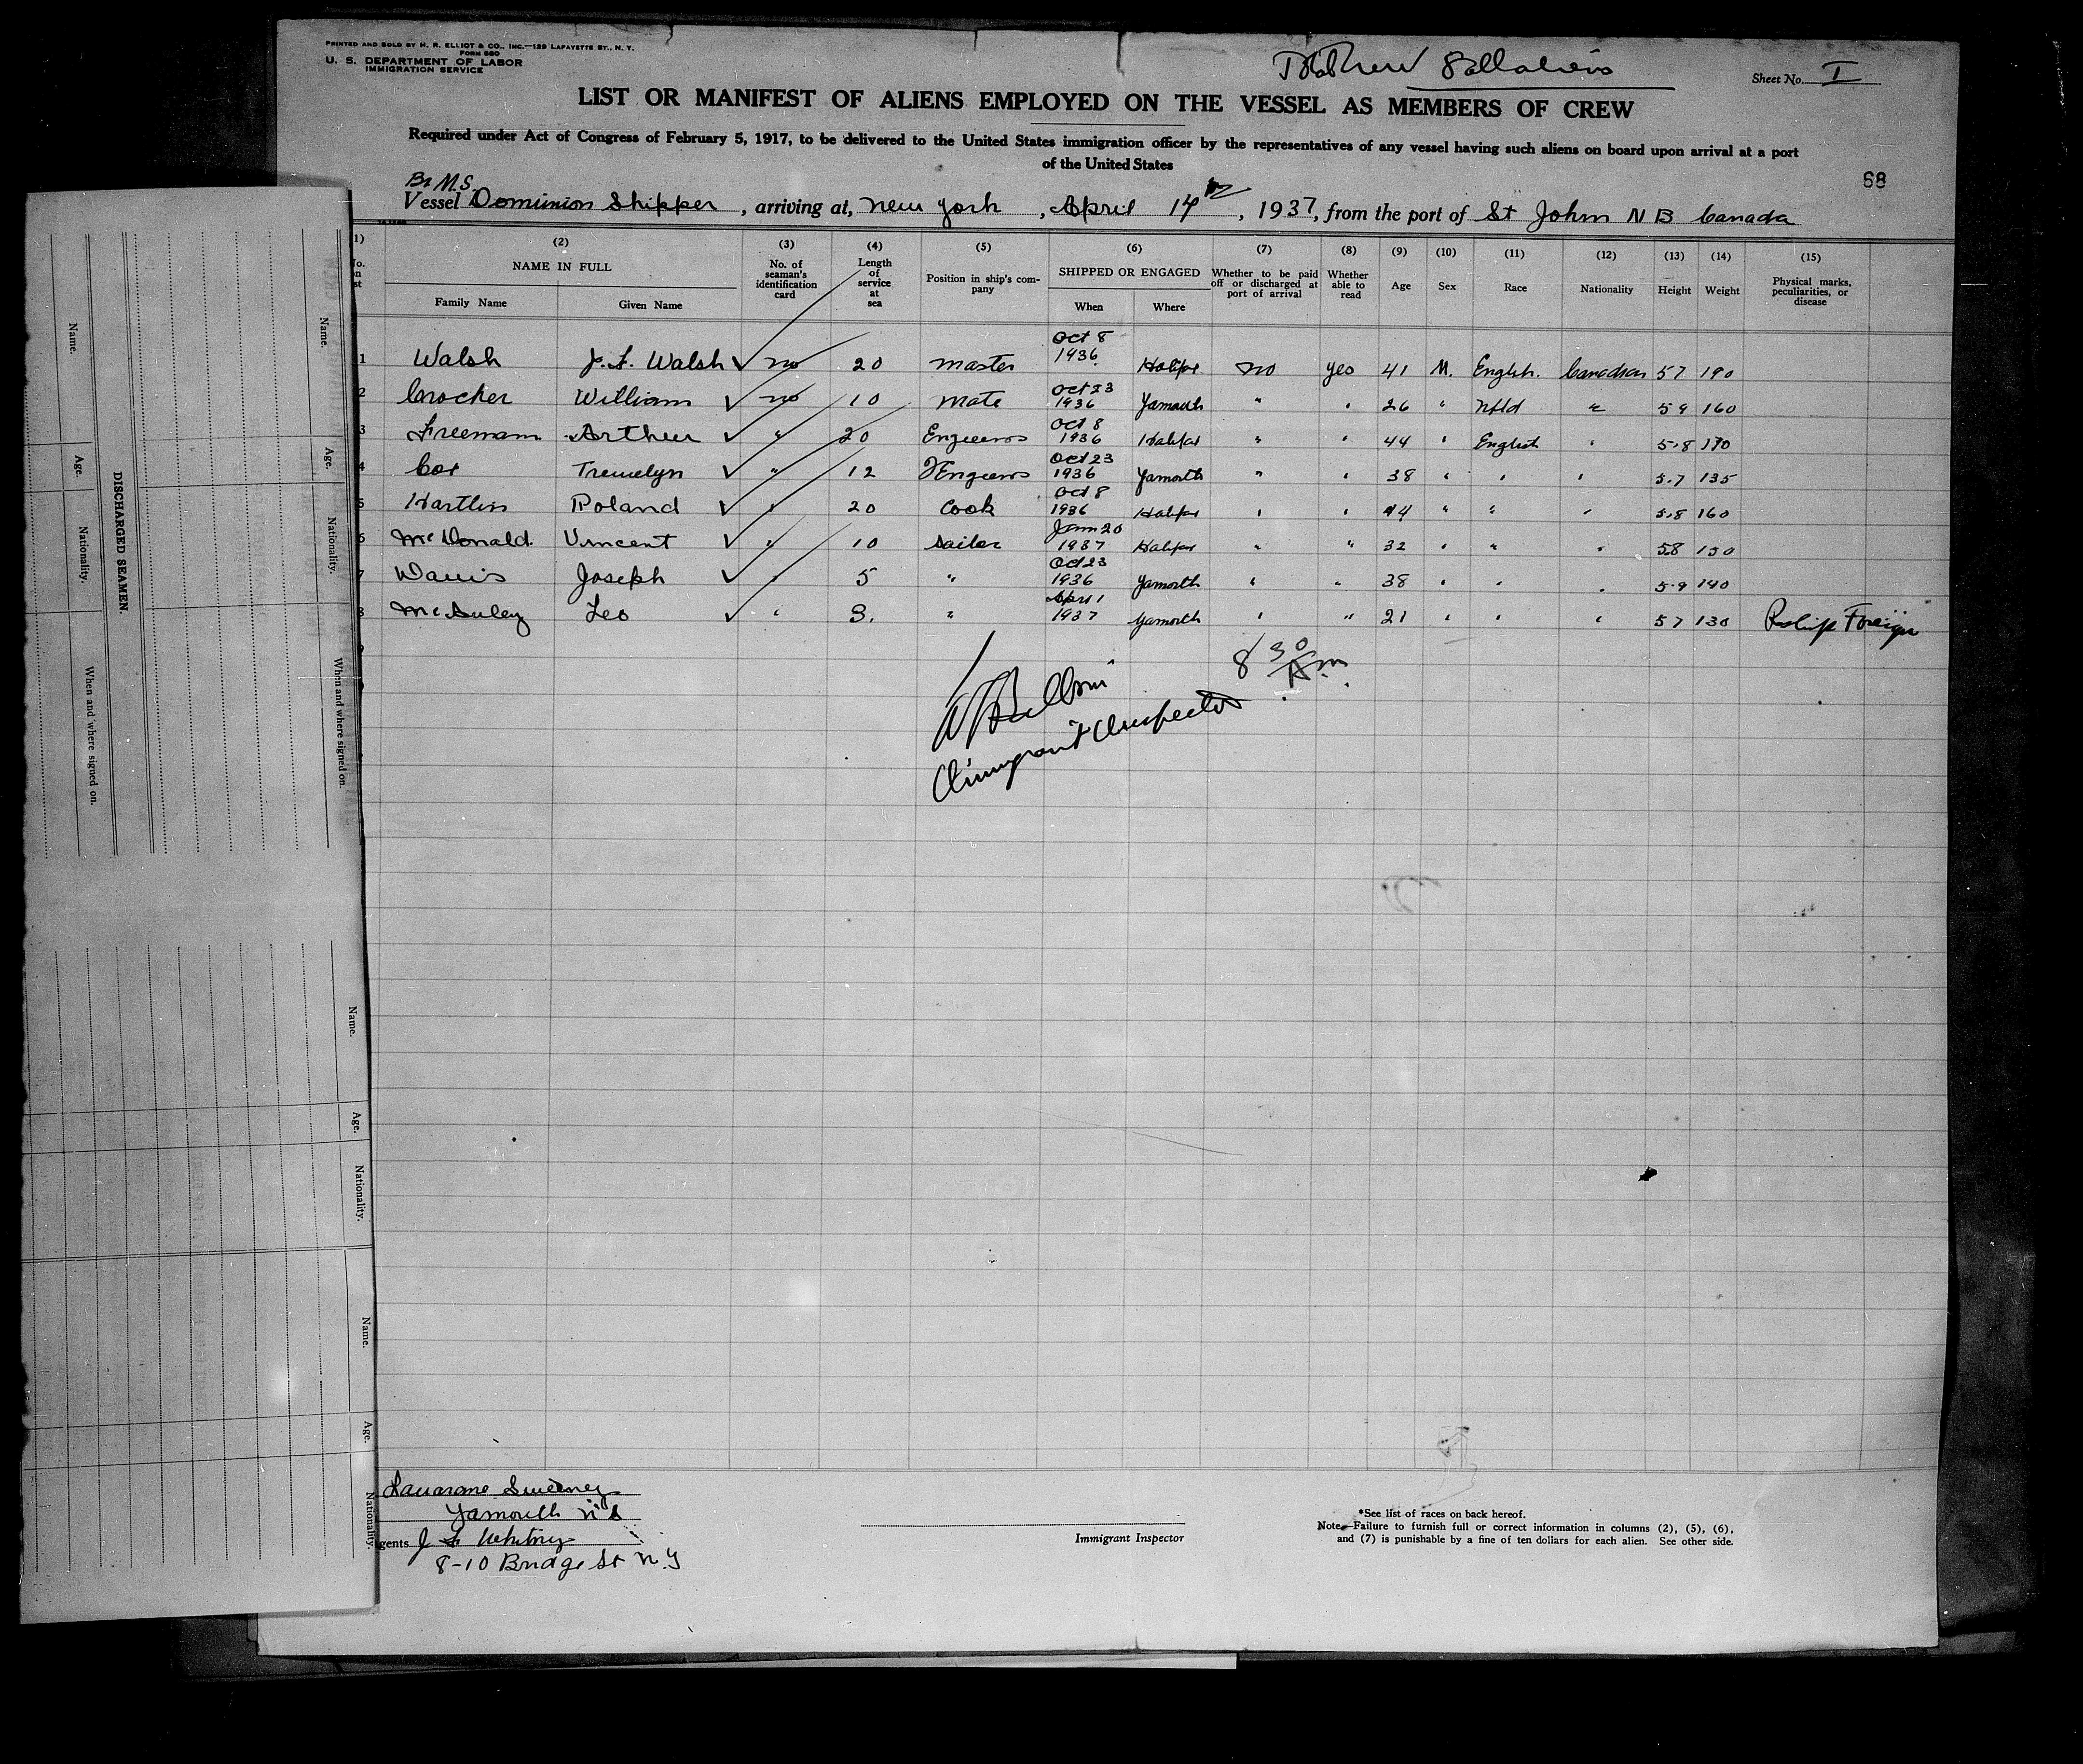 PRINTED AND SOLD BY H. R. ELLIOT & CO., INC.—129 LAFAYETTE ST., N. Y.
FORM 680
U. S. DEPARTMENT OF LABOR
IMMIGRATION SERVICE
Sheet No. I
LIST OR MANIFEST OF ALIENS EMPLOYED ON THE VESSEL AS MEMBERS OF CREW
Required under Act of Congress of February 5, 1917, to be delivered to the United States immigration officer by the representatives of any vessel having such aliens on board upon arrival at a port
of the United States
68
Br M.S.
Vessel Dominion Shipper, arriving at, New York, April 14th, 1937, from the port of St John N B Canada
(1) (2) (3) (4) (5) (6) (7) (8) (9) (10) (11) (12) (13) (14) (15)
NAME IN FULL No. of seaman's identification card Length of service at sea Position in ship's company SHIPPED OR ENGAGED Whether to be paid off or discharged at port of arrival Whether able to read Age Sex Race Nationality Height Weight Physical marks, peculiarities, or disease
Family Name Given Name When Where
1 Walsh J. F. Walsh no 20 master Oct 8 1936 Halifax no yes 41 M. English. Canadian 57 190
2 Crocker William no 10 mate Oct 23 1936 Yarmouth " " 26 " Nfld " 59 160
3 Freeman Arthur " 20 Engineer Oct 8 1936 Halifax " " 44 " English " 5.8 170
4 Cox Tremelyn " 12 2 Engineer Oct 23 1936 Yarmouth " " 38 " " " 5.7 135
5 Hartlin Roland " 20 Cook Oct 8 1936 Halifax " " 44 " " " 5.8 160
6 McDonald Vincent " 10 Sailor Jan 20 1937 Halifax " " 32 " " " 58 150
7 Davis Joseph " 5 " Oct 23 1936 Yarmouth " " 38 " " " 5.9 140
8 McAuley Leo " 3. " April 1 1937 Yarmouth " " 21 " " " 57 130 Foreign
8 30 A.m.
Immigrant Inspector
DISCHARGED SEAMEN.
Name. Age. Nationality. When and where signed on.
Name. Age. Nationality. When and where signed on.
Name. Age. Nationality.
Name. Age. Nationality.
Sweeney
Yarmouth N S
gents J F Whitney
8-10 Bridge St N.Y
Immigrant Inspector
*See list of races on back hereof.
Note.—Failure to furnish full or correct information in columns (2), (5), (6),
and (7) is punishable by a fine of ten dollars for each alien. See other side.